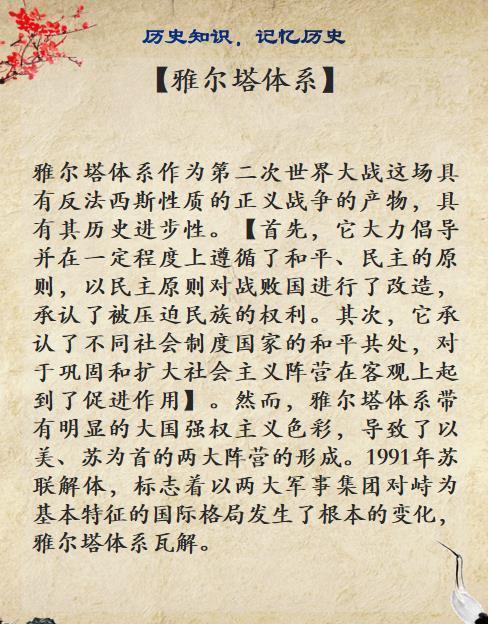 历史知识，记忆历史
【雅尔塔体系】
雅尔塔体系作为第二次世界大战这场具
有反法西斯性质的正义战争的产物，具
有其历史进步性。【首先，它大力倡导
并在一定程度上遵循了和平、民主的原
则，以民主原则对战败国进行了改造，
承认了被压迫民族的权利。其次，它承
认了不同社会制度国家的和平共处，对
于巩固和扩大社会主义阵营在客观上起
到了促进作用】。然而，雅尔塔体系带
有明显的大国强权主义色彩，导致了以
美、苏为首的两大阵营的形成。1991年苏
联解体，标志着以两大军事集团对峙为
基本特征的国际格局发生了根本的变化，
雅尔塔体系瓦解。